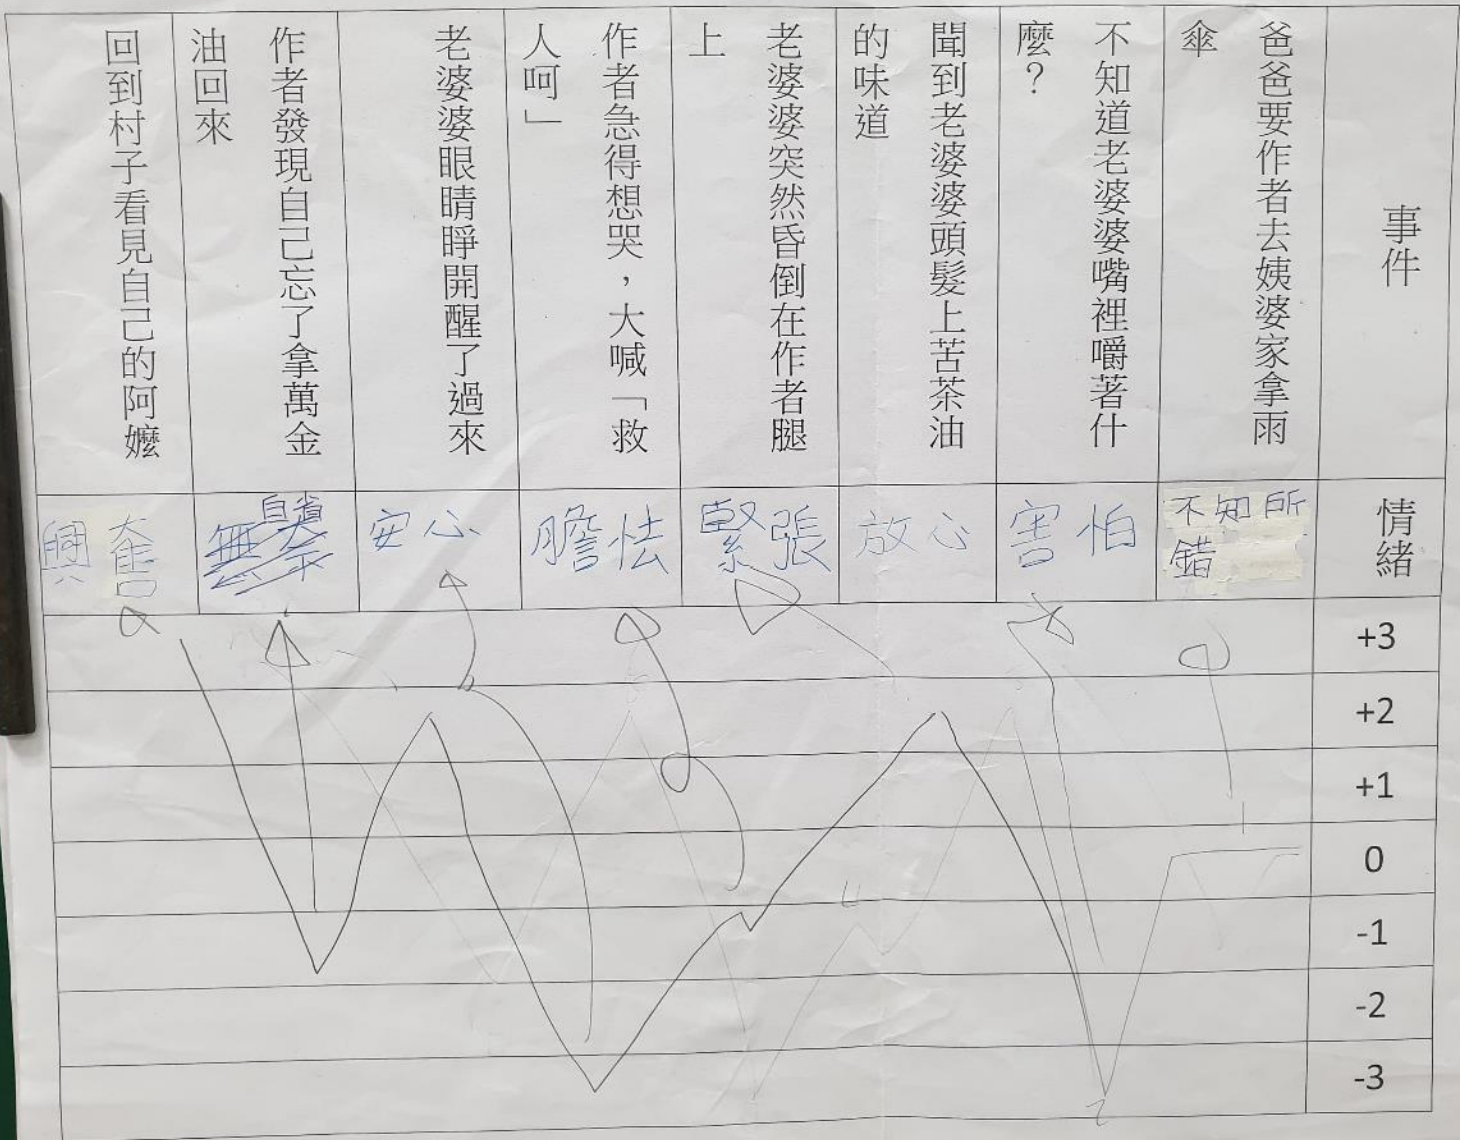 事件
爸爸要作者去姨婆家拿雨
傘
不知道老婆婆嘴裡嚼著什
麼？
聞到老婆婆頭髮上苦茶油
的味道
老婆婆突然昏倒在作者腿
上
作者急得想哭，大喊「救
人呵」
老婆婆眼睛睜開醒了過來
作者發現自己忘了拿萬金
油回來
回到村子看見自己的阿嬤
情緒
不知所
錯
害怕
放心
緊張
膽怯
安心
自省
興奮
+3
+2
+1
0
-1
-2
-3